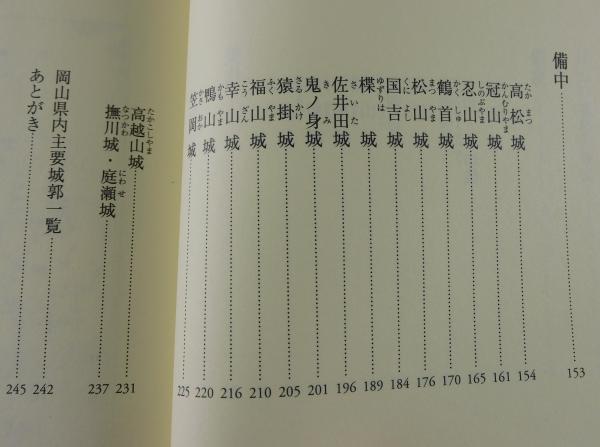 備中……153
高松城……154
冠山城……161
忍山城……165
鶴首城……170
松山城……176
国吉城……184
楪城……189
佐井田城……196
鬼ノ身城……201
猿掛城……205
福山城……210
幸山城……216
鴨山城……220
笠岡城……225
高越山城……231
撫川城・庭瀬城……237
岡山県内主要城郭一覧……242
あとがき……245